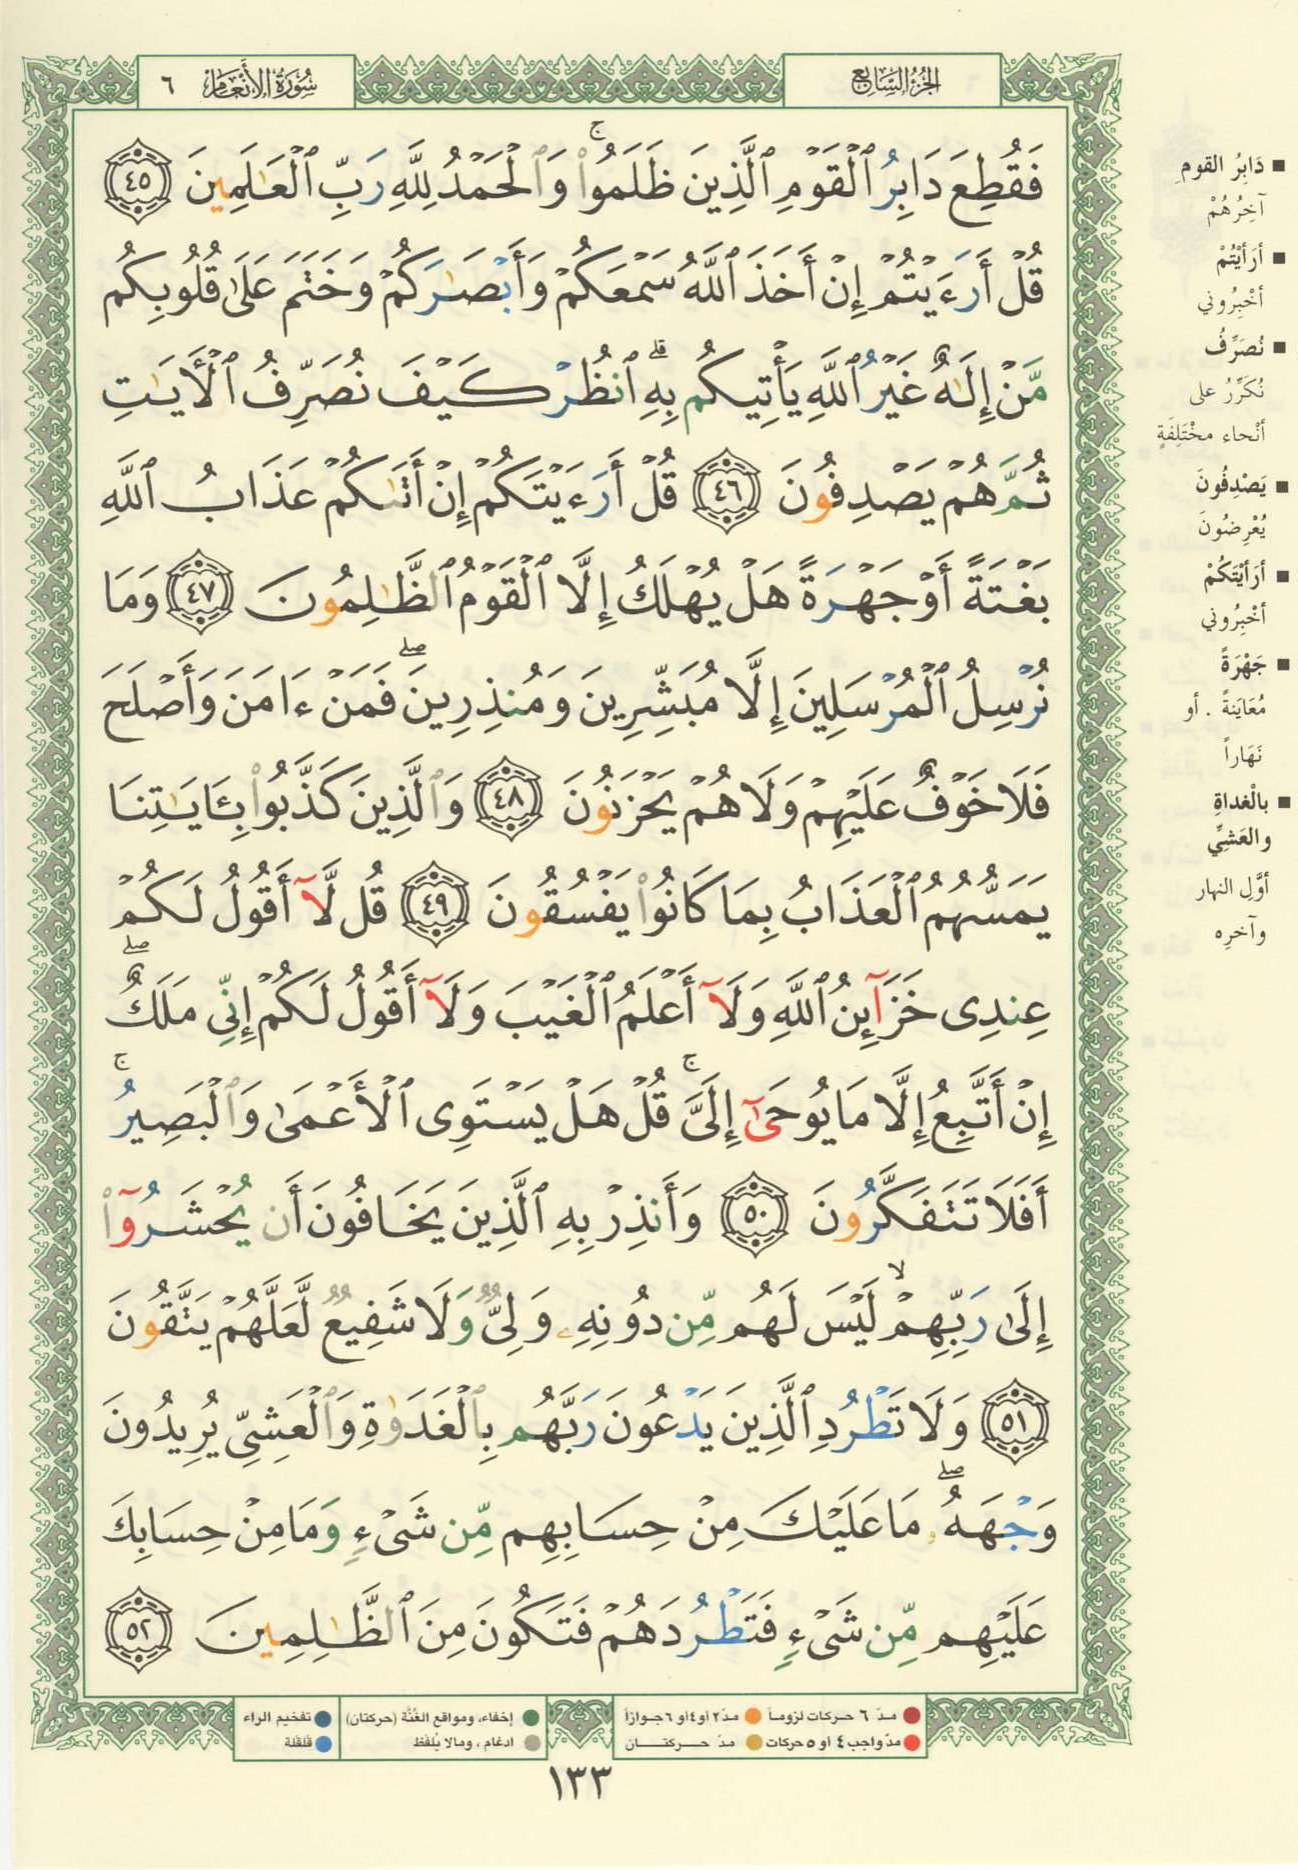 الجزء السابع
سورة الأنعام ٦
فَقُطِعَ دَابِرُ ٱلْقَوْمِ ٱلَّذِينَ ظَلَمُوا۟ ۚ وَٱلْحَمْدُ لِلَّهِ رَبِّ ٱلْعَـٰلَمِينَ ٤٥
قُلْ أَرَءَيْتُمْ إِنْ أَخَذَ ٱللَّهُ سَمْعَكُمْ وَأَبْصَـٰرَكُمْ وَخَتَمَ عَلَىٰ قُلُوبِكُم
مَّنْ إِلَـٰهٌ غَيْرُ ٱللَّهِ يَأْتِيكُم بِهِ ۗ ٱنظُرْ كَيْفَ نُصَرِّفُ ٱلْـَٔايَـٰتِ
ثُمَّ هُمْ يَصْدِفُونَ ٤٦ قُلْ أَرَءَيْتَكُمْ إِنْ أَتَىٰكُمْ عَذَابُ ٱللَّهِ
بَغْتَةً أَوْ جَهْرَةً هَلْ يُهْلَكُ إِلَّا ٱلْقَوْمُ ٱلظَّـٰلِمُونَ ٤٧ وَمَا
نُرْسِلُ ٱلْمُرْسَلِينَ إِلَّا مُبَشِّرِينَ وَمُنذِرِينَ ۖ فَمَنْ ءَامَنَ وَأَصْلَحَ
فَلَا خَوْفٌ عَلَيْهِمْ وَلَا هُمْ يَحْزَنُونَ ٤٨ وَٱلَّذِينَ كَذَّبُوا۟ بِـَٔايَـٰتِنَا
يَمَسُّهُمُ ٱلْعَذَابُ بِمَا كَانُوا۟ يَفْسُقُونَ ٤٩ قُل لَّآ أَقُولُ لَكُمْ
عِندِى خَزَآئِنُ ٱللَّهِ وَلَآ أَعْلَمُ ٱلْغَيْبَ وَلَآ أَقُولُ لَكُمْ إِنِّى مَلَكٌ ۖ
إِنْ أَتَّبِعُ إِلَّا مَا يُوحَىٰٓ إِلَىَّ ۚ قُلْ هَلْ يَسْتَوِى ٱلْأَعْمَىٰ وَٱلْبَصِيرُ ۚ
أَفَلَا تَتَفَكَّرُونَ ٥٠ وَأَنذِرْ بِهِ ٱلَّذِينَ يَخَافُونَ أَن يُحْشَرُوٓا۟
إِلَىٰ رَبِّهِمْ ۙ لَيْسَ لَهُم مِّن دُونِهِۦ وَلِىٌّ وَلَا شَفِيعٌ لَّعَلَّهُمْ يَتَّقُونَ
٥١ وَلَا تَطْرُدِ ٱلَّذِينَ يَدْعُونَ رَبَّهُم بِٱلْغَدَوٰةِ وَٱلْعَشِىِّ يُرِيدُونَ
وَجْهَهُۥ ۖ مَا عَلَيْكَ مِنْ حِسَابِهِم مِّن شَىْءٍ وَمَا مِنْ حِسَابِكَ
عَلَيْهِم مِّن شَىْءٍ فَتَطْرُدَهُمْ فَتَكُونَ مِنَ ٱلظَّـٰلِمِينَ ٥٢
دَابِرُ القومِ
آخِرُهُمْ
أرَأيْتُمْ
أخْبِرُوني
نُصَرِّفُ
نُكَرِّرُ على
أنْحاء مخْتَلِفَةٍ
يَصْدِفُونَ
يُعْرِضُونَ
أرَأيْتَكُمْ
أخْبِرُوني
جَهْرَةً
مُعَايَنةً . أو
نَهَاراً
بالْغداةِ
والعَشيِّ
أوَّلِ النهار
وآخرِه
مدّ ٦ حركات لزوماً مدّ ٢ أو ٤ أو ٦ جوازاً إخفاء، ومواقع الغُنَّة (حركتان) تفخيم الراء
مدّ واجب ٤ أو ٥ حركات مدّ حـــركتـــان ادغام ، ومالا يُلفَظ قلقلة
١٣٣